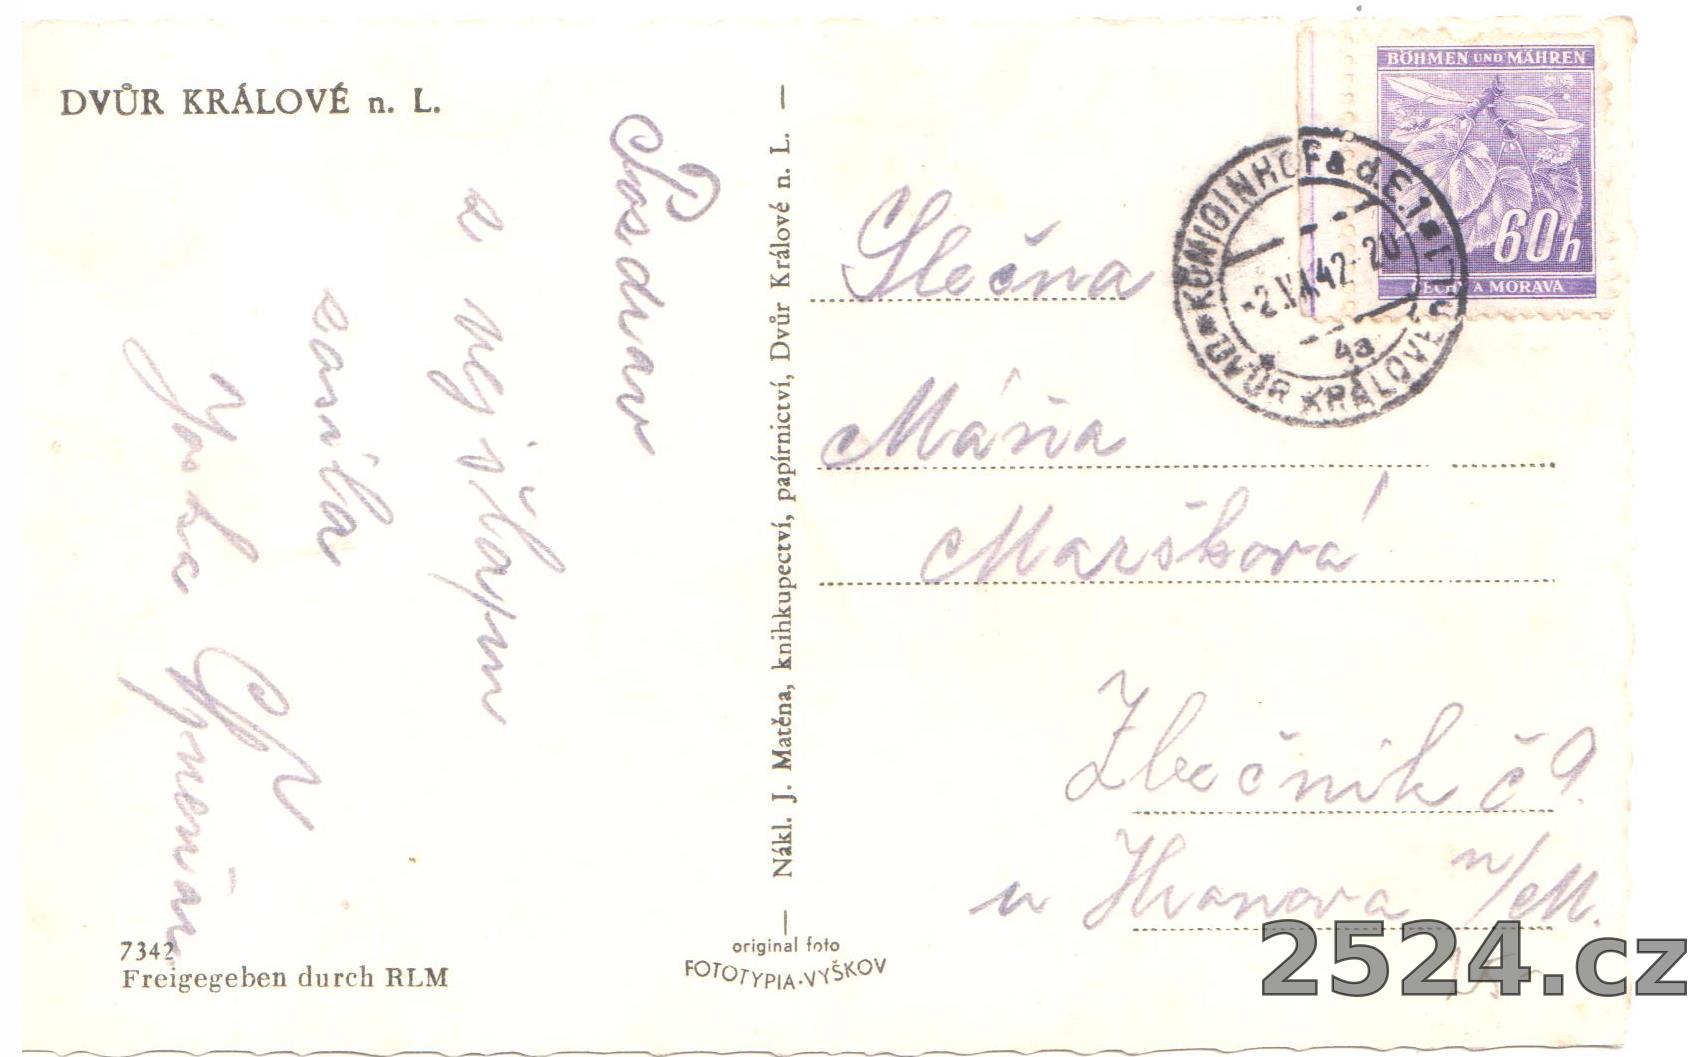 DVŮR KRÁLOVÉ n. L.
Pozdrav
z
zasílá
Nákl. J. Matěna, knihkupectví, papírnictví, Dvůr Králové n. L.
BÖHMEN UND MÄHREN
60h
ČECHY A MORAVA
KÖNIGINHOF a. d. E. 1
-2.XI.42-20
4a
DVŮR KRÁLOVÉ n. L. 1
Slečna
Máňa
Maršková
Zbečník č 9.
u Hronova n/M.
7342
Freigegeben durch RLM
original foto
FOTOTYPIA-VYŠKOV
2524.cz